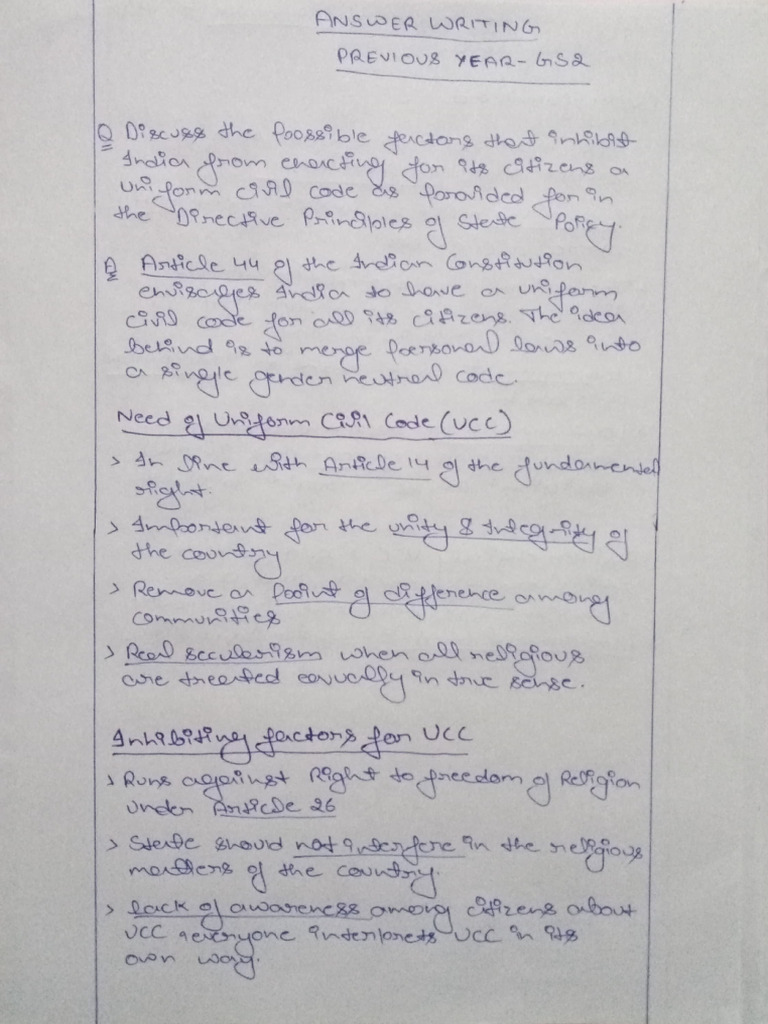 ANSWER WRITING
PREVIOUS YEAR - GS2
Q Discuss the possible factors that inhibit
India from enacting for its citizens a
uniform civil code as provided for in
the Directive Principles of State Policy.
A Article 44 of the Indian Constitution
envisages India to have a uniform
civil code for all its citizens. The idea
behind is to merge personal laws into
a single gender neutral code.
Need of Uniform Civil Code (UCC)
> In line with Article 14 of the fundamental
right.
> Important for the unity & Integrity of
the country
> Remove a point of difference among
communities
> Real secularism when all religious
are treated equally in true sense.
Inhibiting factors for UCC
> Runs against Right to freedom of Religion
under Article 26
> State should not interfere in the religious
matters of the country.
> lack of awareness among citizens about
UCC, everyone interprets UCC in its
own way.